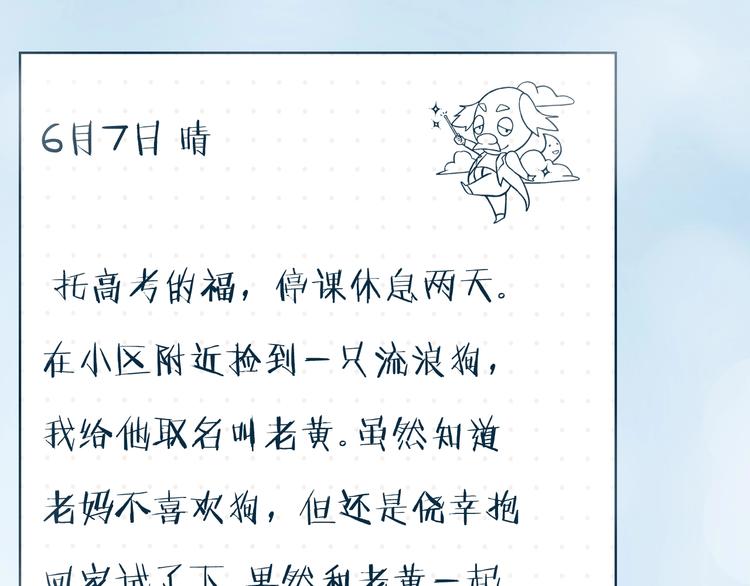 6月7日 晴
托高考的福，停课休息两天。
在小区附近捡到一只流浪狗，
我给他取名叫老黄。虽然知道
老妈不喜欢狗，但还是侥幸抱
回家试了下，果然和老黄一起